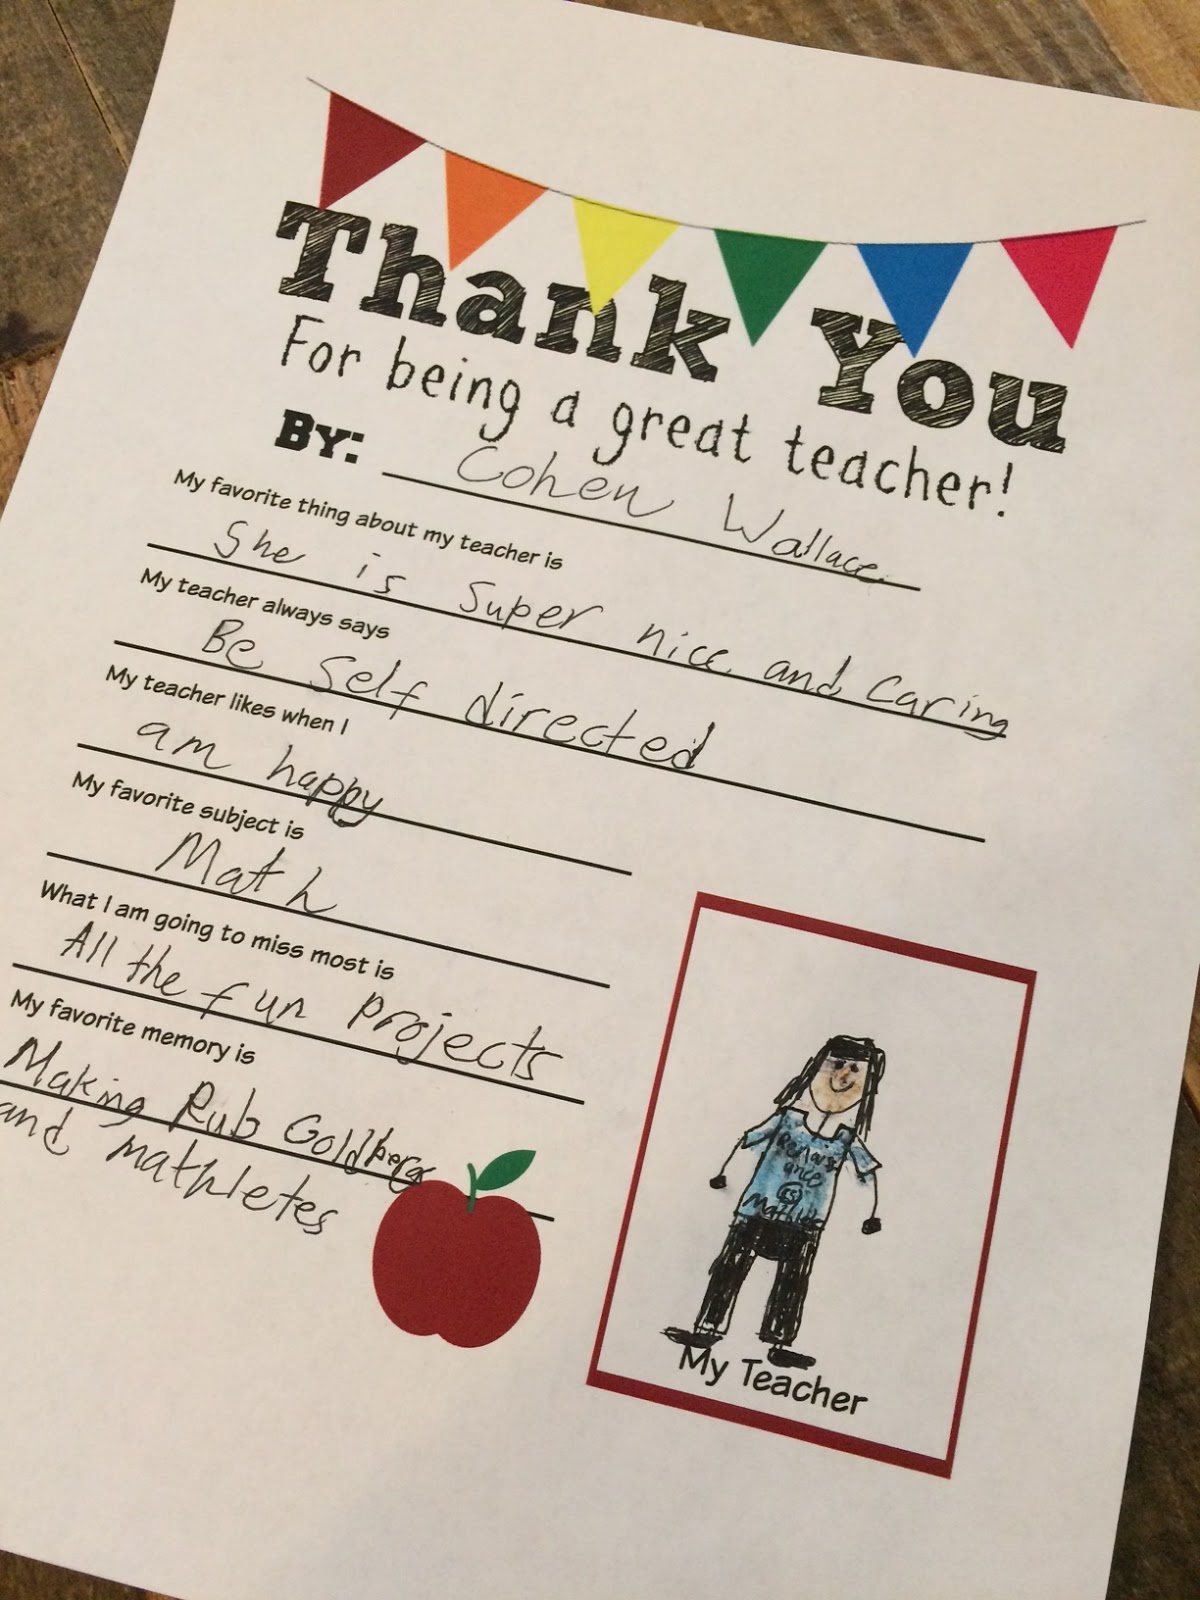 Thank You
For being a great teacher!
By: Cohen Wallace
My favorite thing about my teacher is
She is super nice and caring
My teacher always says
Be self directed
My teacher likes when I
am happy
My favorite subject is
Math
What I am going to miss most is
All the fun projects
My favorite memory is
Making Rub Goldberg
and mathletes
Renaiss
ance
My Teacher